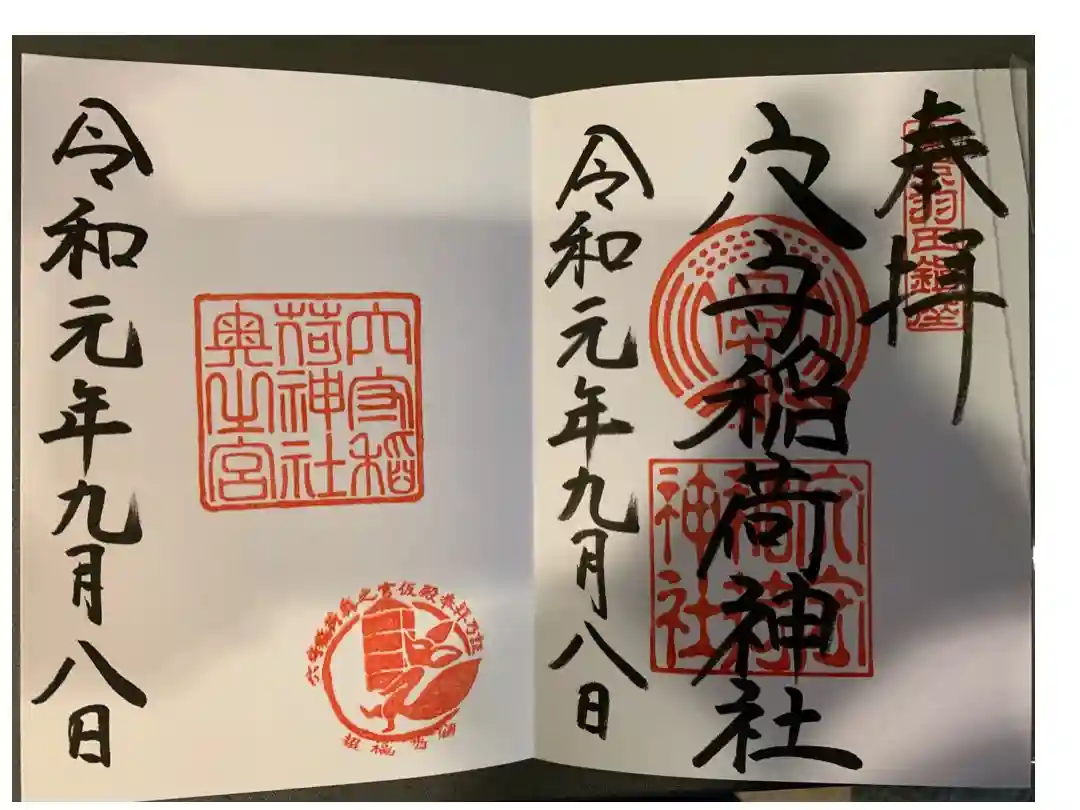 奉拝
羽田鎮座
穴守稲荷神社
穴守稲荷神社
令和元年九月八日
穴守稲
荷神社
奥之宮
之宮仮殿参拝
招福
令和元年九月八日